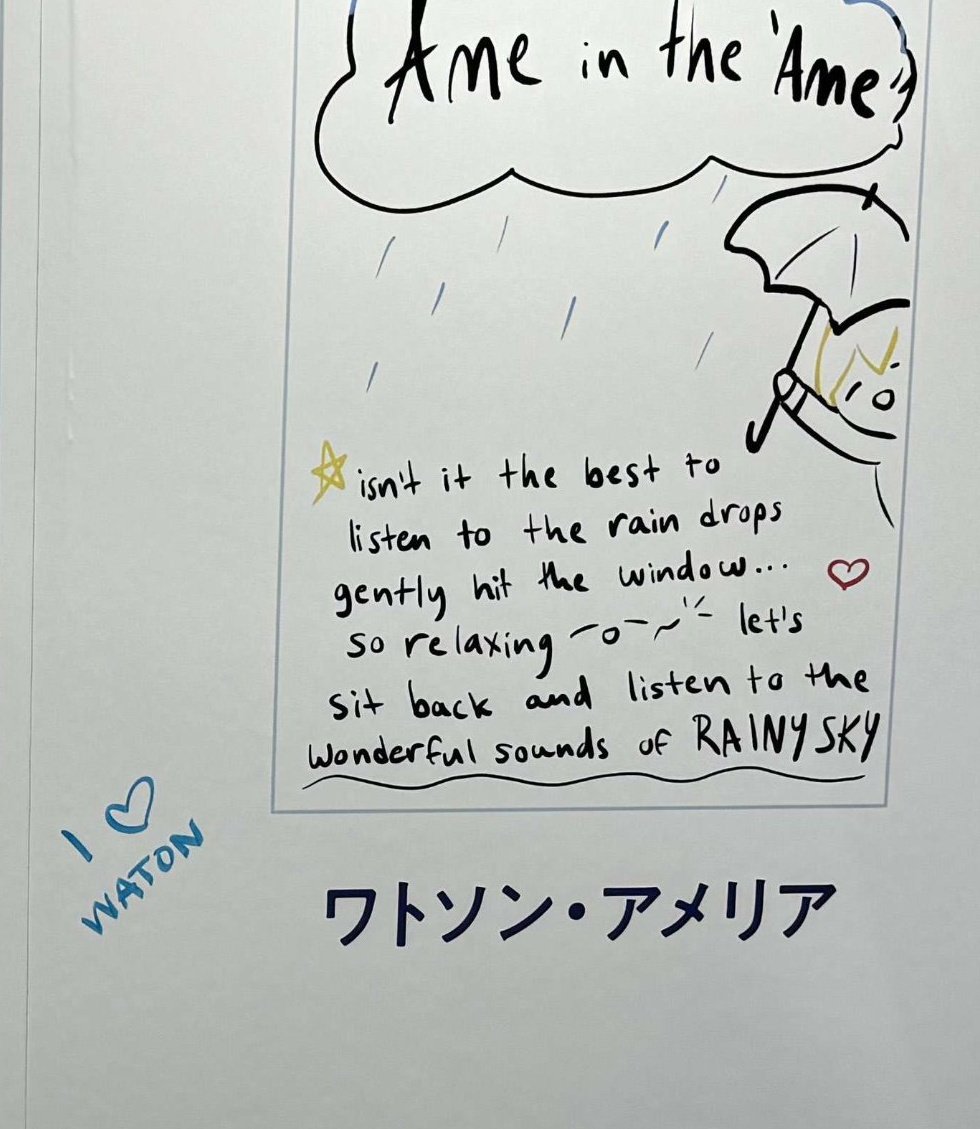 Ame in the 'Ame'
isn't it the best to
listen to the rain drops
gently hit the window...
so relaxing let's
sit back and listen to the
wonderful sounds of RAINY SKY
I ♡
WATON
ワトソン・アメリア